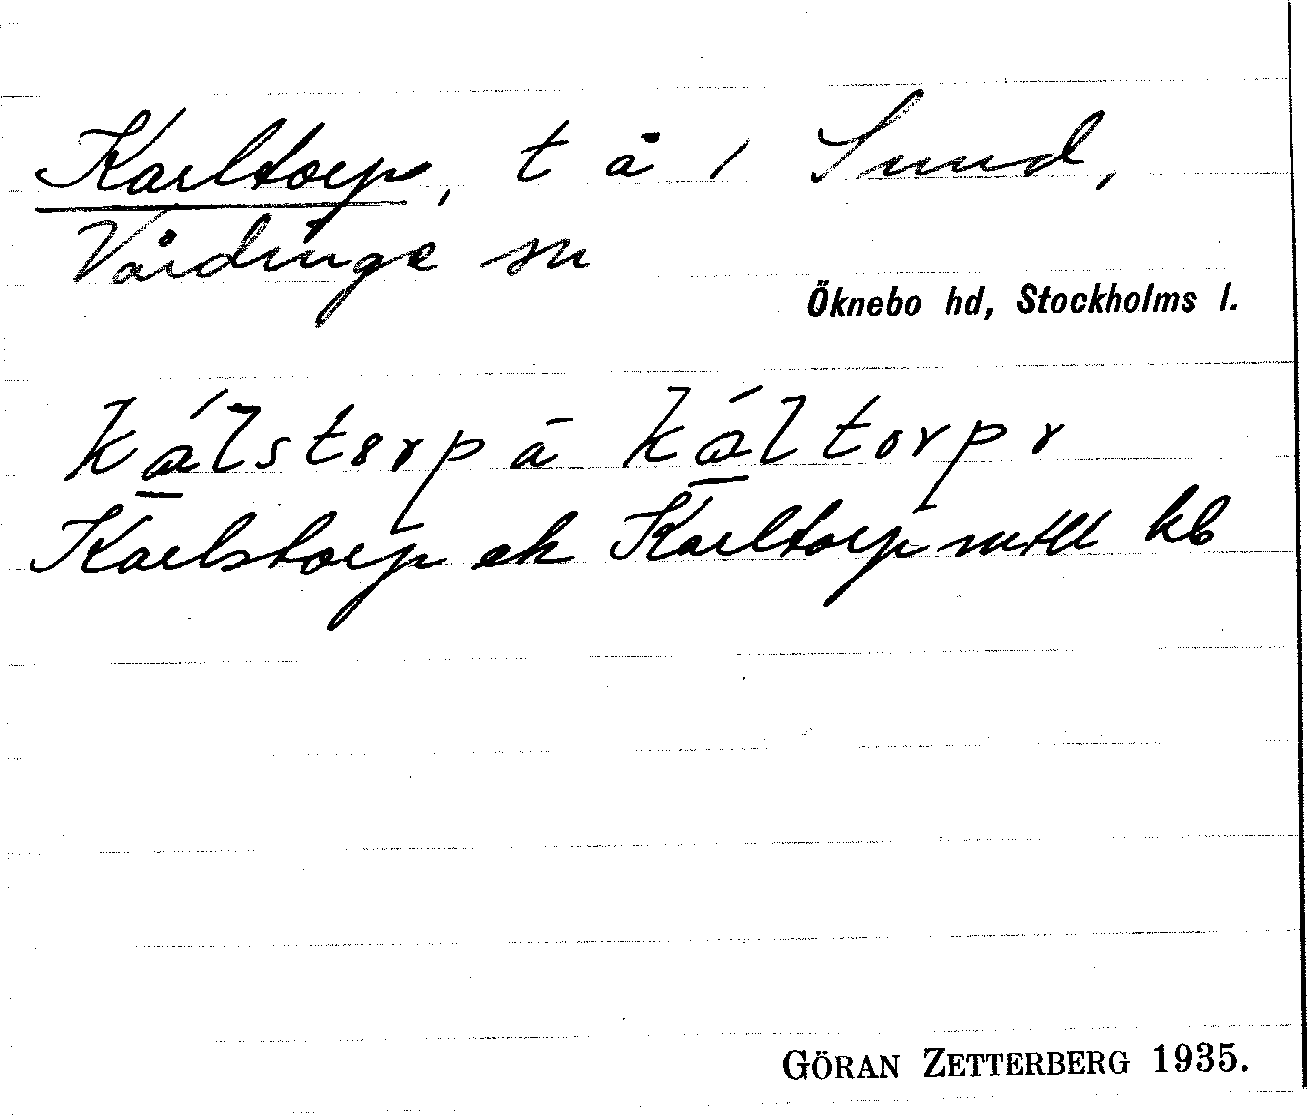 Karltorp, t å 1 Sund,
Vårdinge sn
Öknebo hd, Stockholms l.
kálstorp ā káltorp r
Karlstorp ek Karltorp mtll kb
GÖRAN ZETTERBERG 1935.